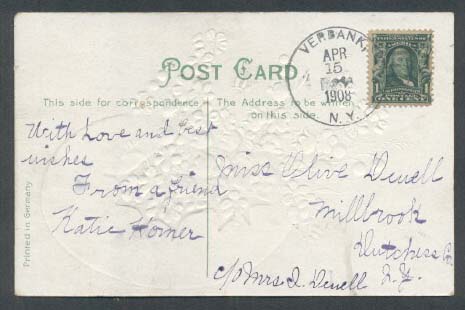 POST CARD
This side for correspondence
The Address to be written on this side.
VERBANK
APR
15
1908
N.Y.
ONE CENT
With Love and best
wishes
From a friend
Katie Homer
Miss Olive Devell
Millbrook
Dutchess Co.
c/o Mrs. I. Devell N.Y.
Printed in Germany